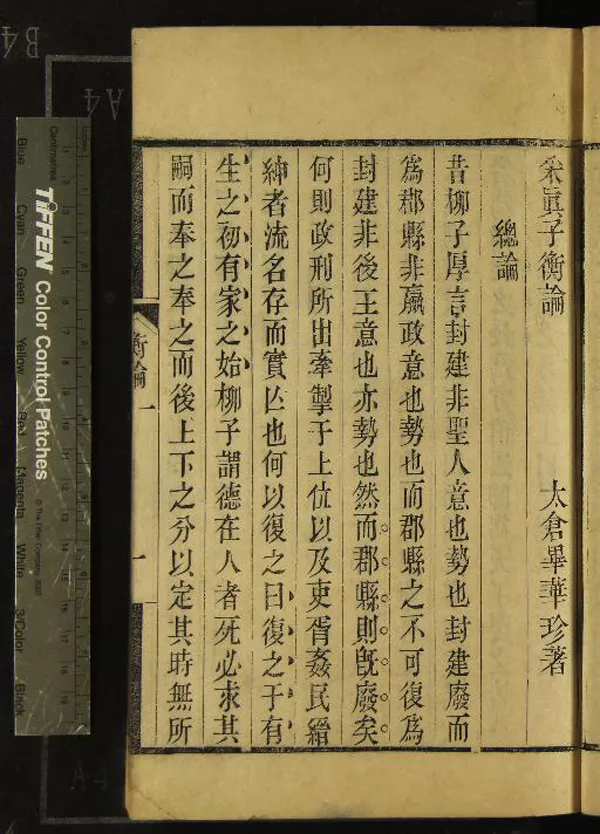 衡論 太倉畢華珍著
總論
昔柳子厚言封建非聖人意也勢也封建廢而
爲郡縣非嬴政意也勢也而郡縣之不可復爲
封建非後王意也亦勢也然而郡縣則旣廢矣
何則政刑所出牽掣于上位以及吏胥姦民縉
紳者流名存而實亾也何以復之曰復之于有
生之初有家之始柳子謂德在人者死必求其
嗣而奉之奉之而後上下之分以定其時無所
衡論 一
一
Centimetres
Inches
TIFFEN Color Control Patches
© The Tiffen Company, 2007
Blue
Cyan
Green
Yellow
Red
Magenta
White
3/Color
Black
B4
A4
A4